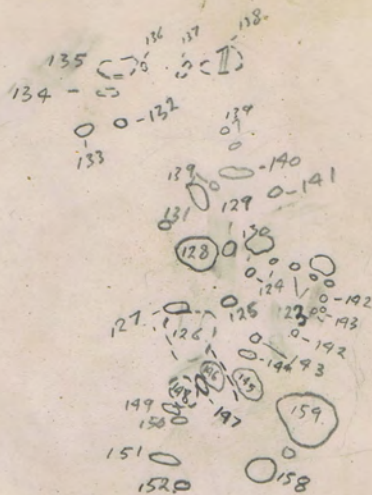 136 137 138
135
134
132
133
139
139 140
141
129
131
130
128
124
142
127 125 123 143
126
142
144 143
146 145
148
149 147 159
150
151
152 158